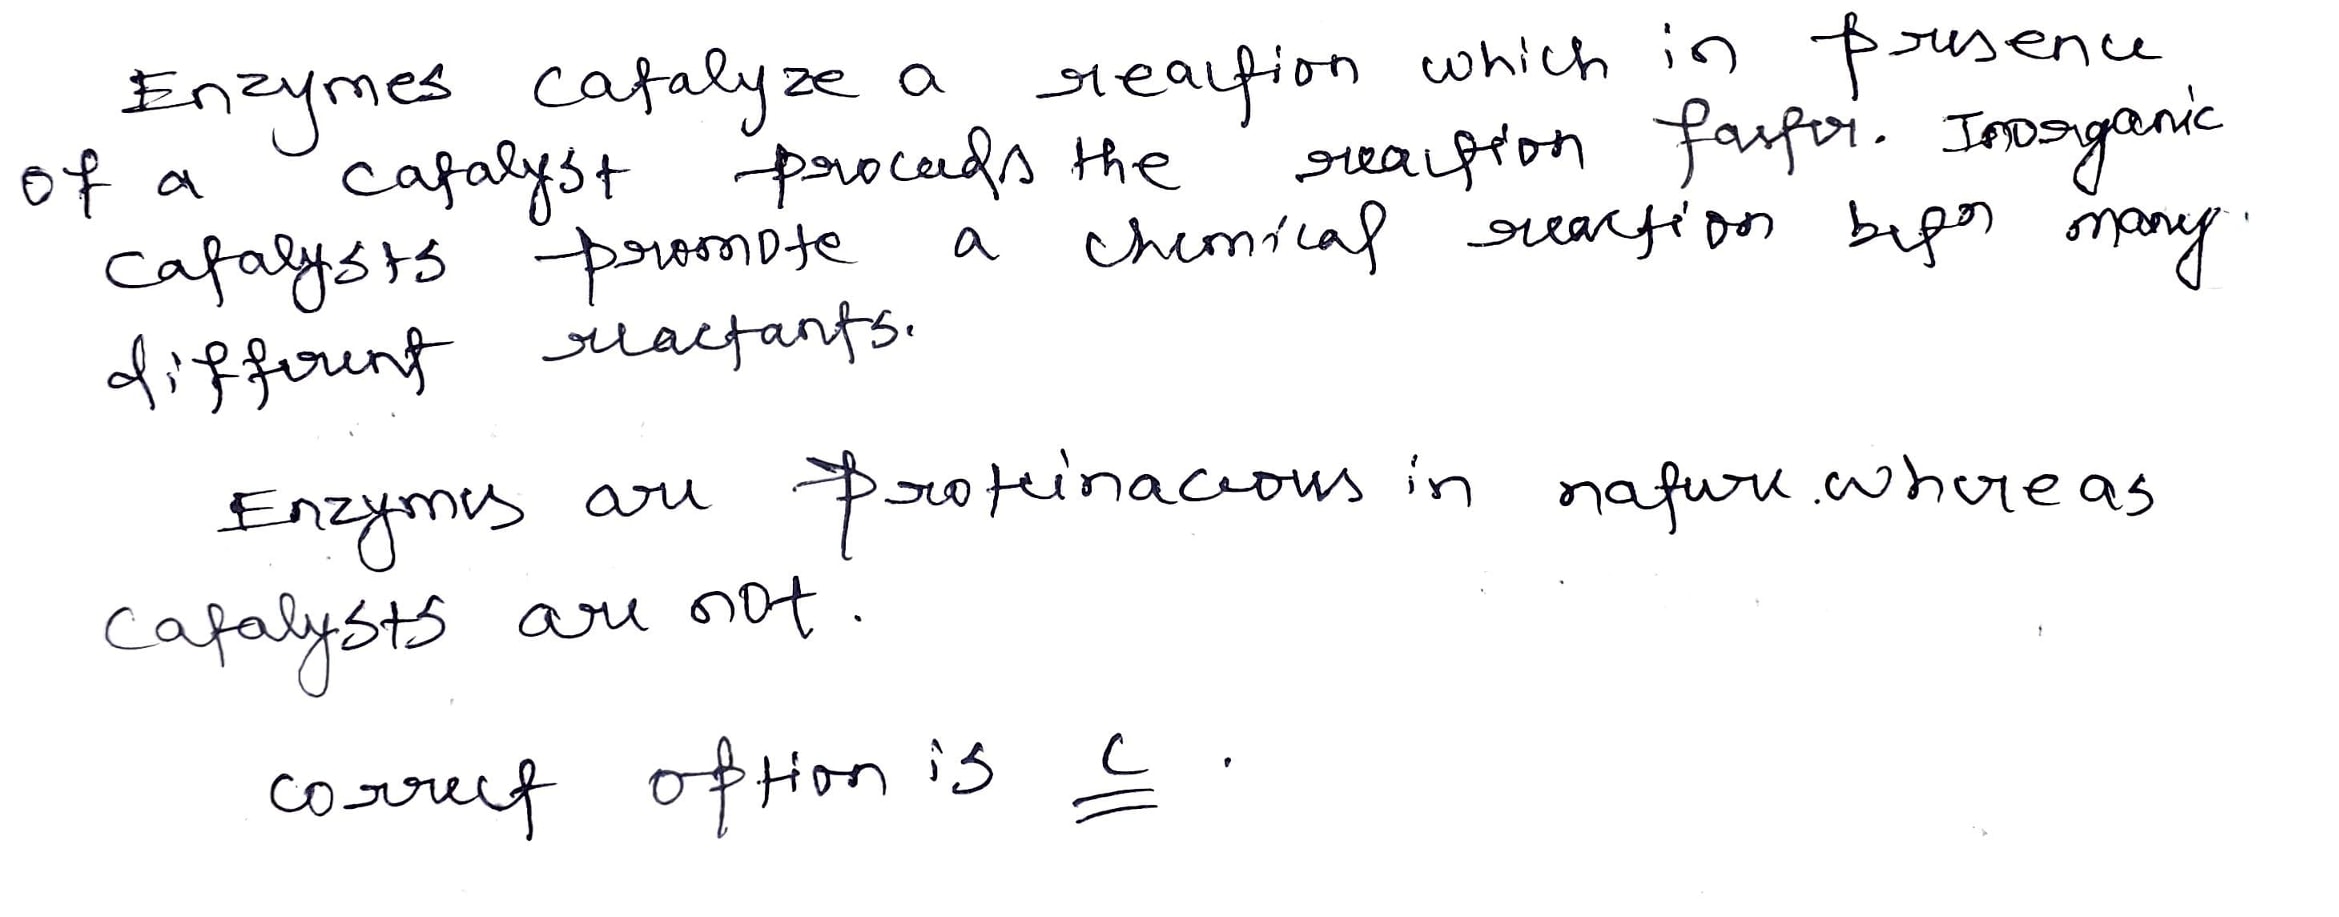 Enzymes catalyze a reaction which in presence
of a catalyst proceeds the reaction faster. Inorganic
catalysts promote a chemical reaction many
different reactants.
Enzymes are proteinaceous in nature. whereas
catalysts are not.
correct option is C.